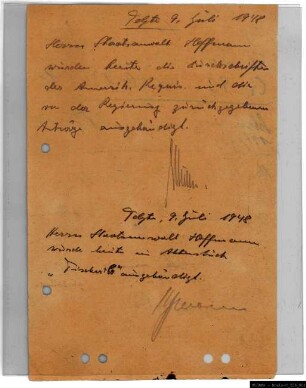 Telgte 9. Juli 1948
Herrn Staatsanwalt Hoffmann
wurden heute die Durchschriften
der Amerik. Requis. und die
von der Regierung zurückgegebenen
Anträge ausgehändigt.
Telgte, 9. Juli 1948
Herrn Staatsanwalt Hoffmann
wurde heute ein Aktenstück
"Fischer" ausgehändigt.